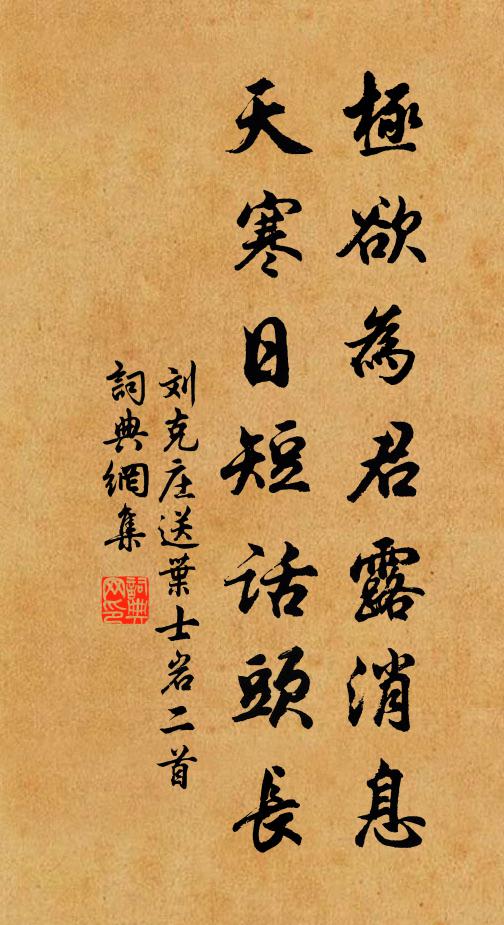 極欲為君露消息
天寒日短話頭長
刘克庄送葉士岩二首
詞典網集
詞典網印